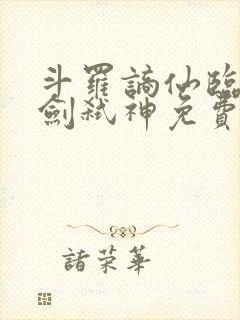 斗羅謫仙臨
劍弒神免費
諸荣華